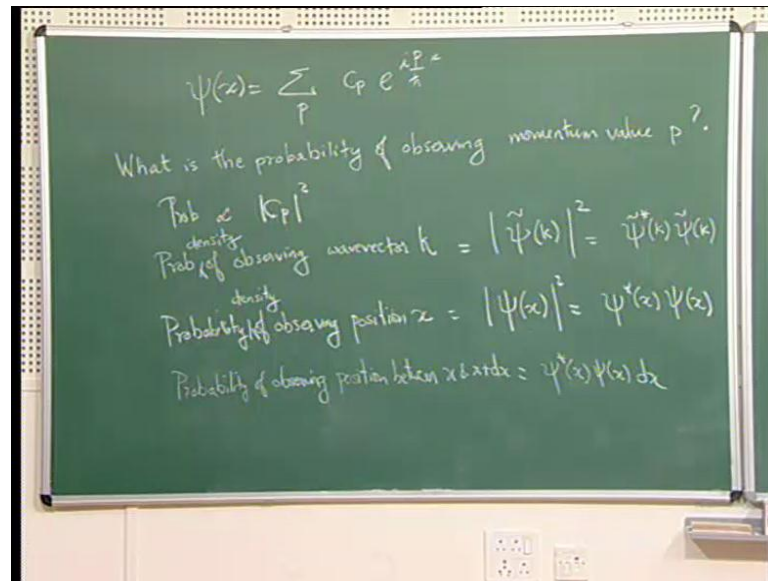 ψ(x) = ∑_p c_p e^{i p/ħ x}
What is the probability of observing momentum value p?.
Prob ∝ |c_p|²
Prob density of observing wavevector k = |ψ̃(k)|² = ψ̃*(k) ψ̃(k)
Probability density of observing position x = |ψ(x)|² = ψ*(x) ψ(x)
Probability of observing position between x & x+dx = ψ*(x) ψ(x) dx